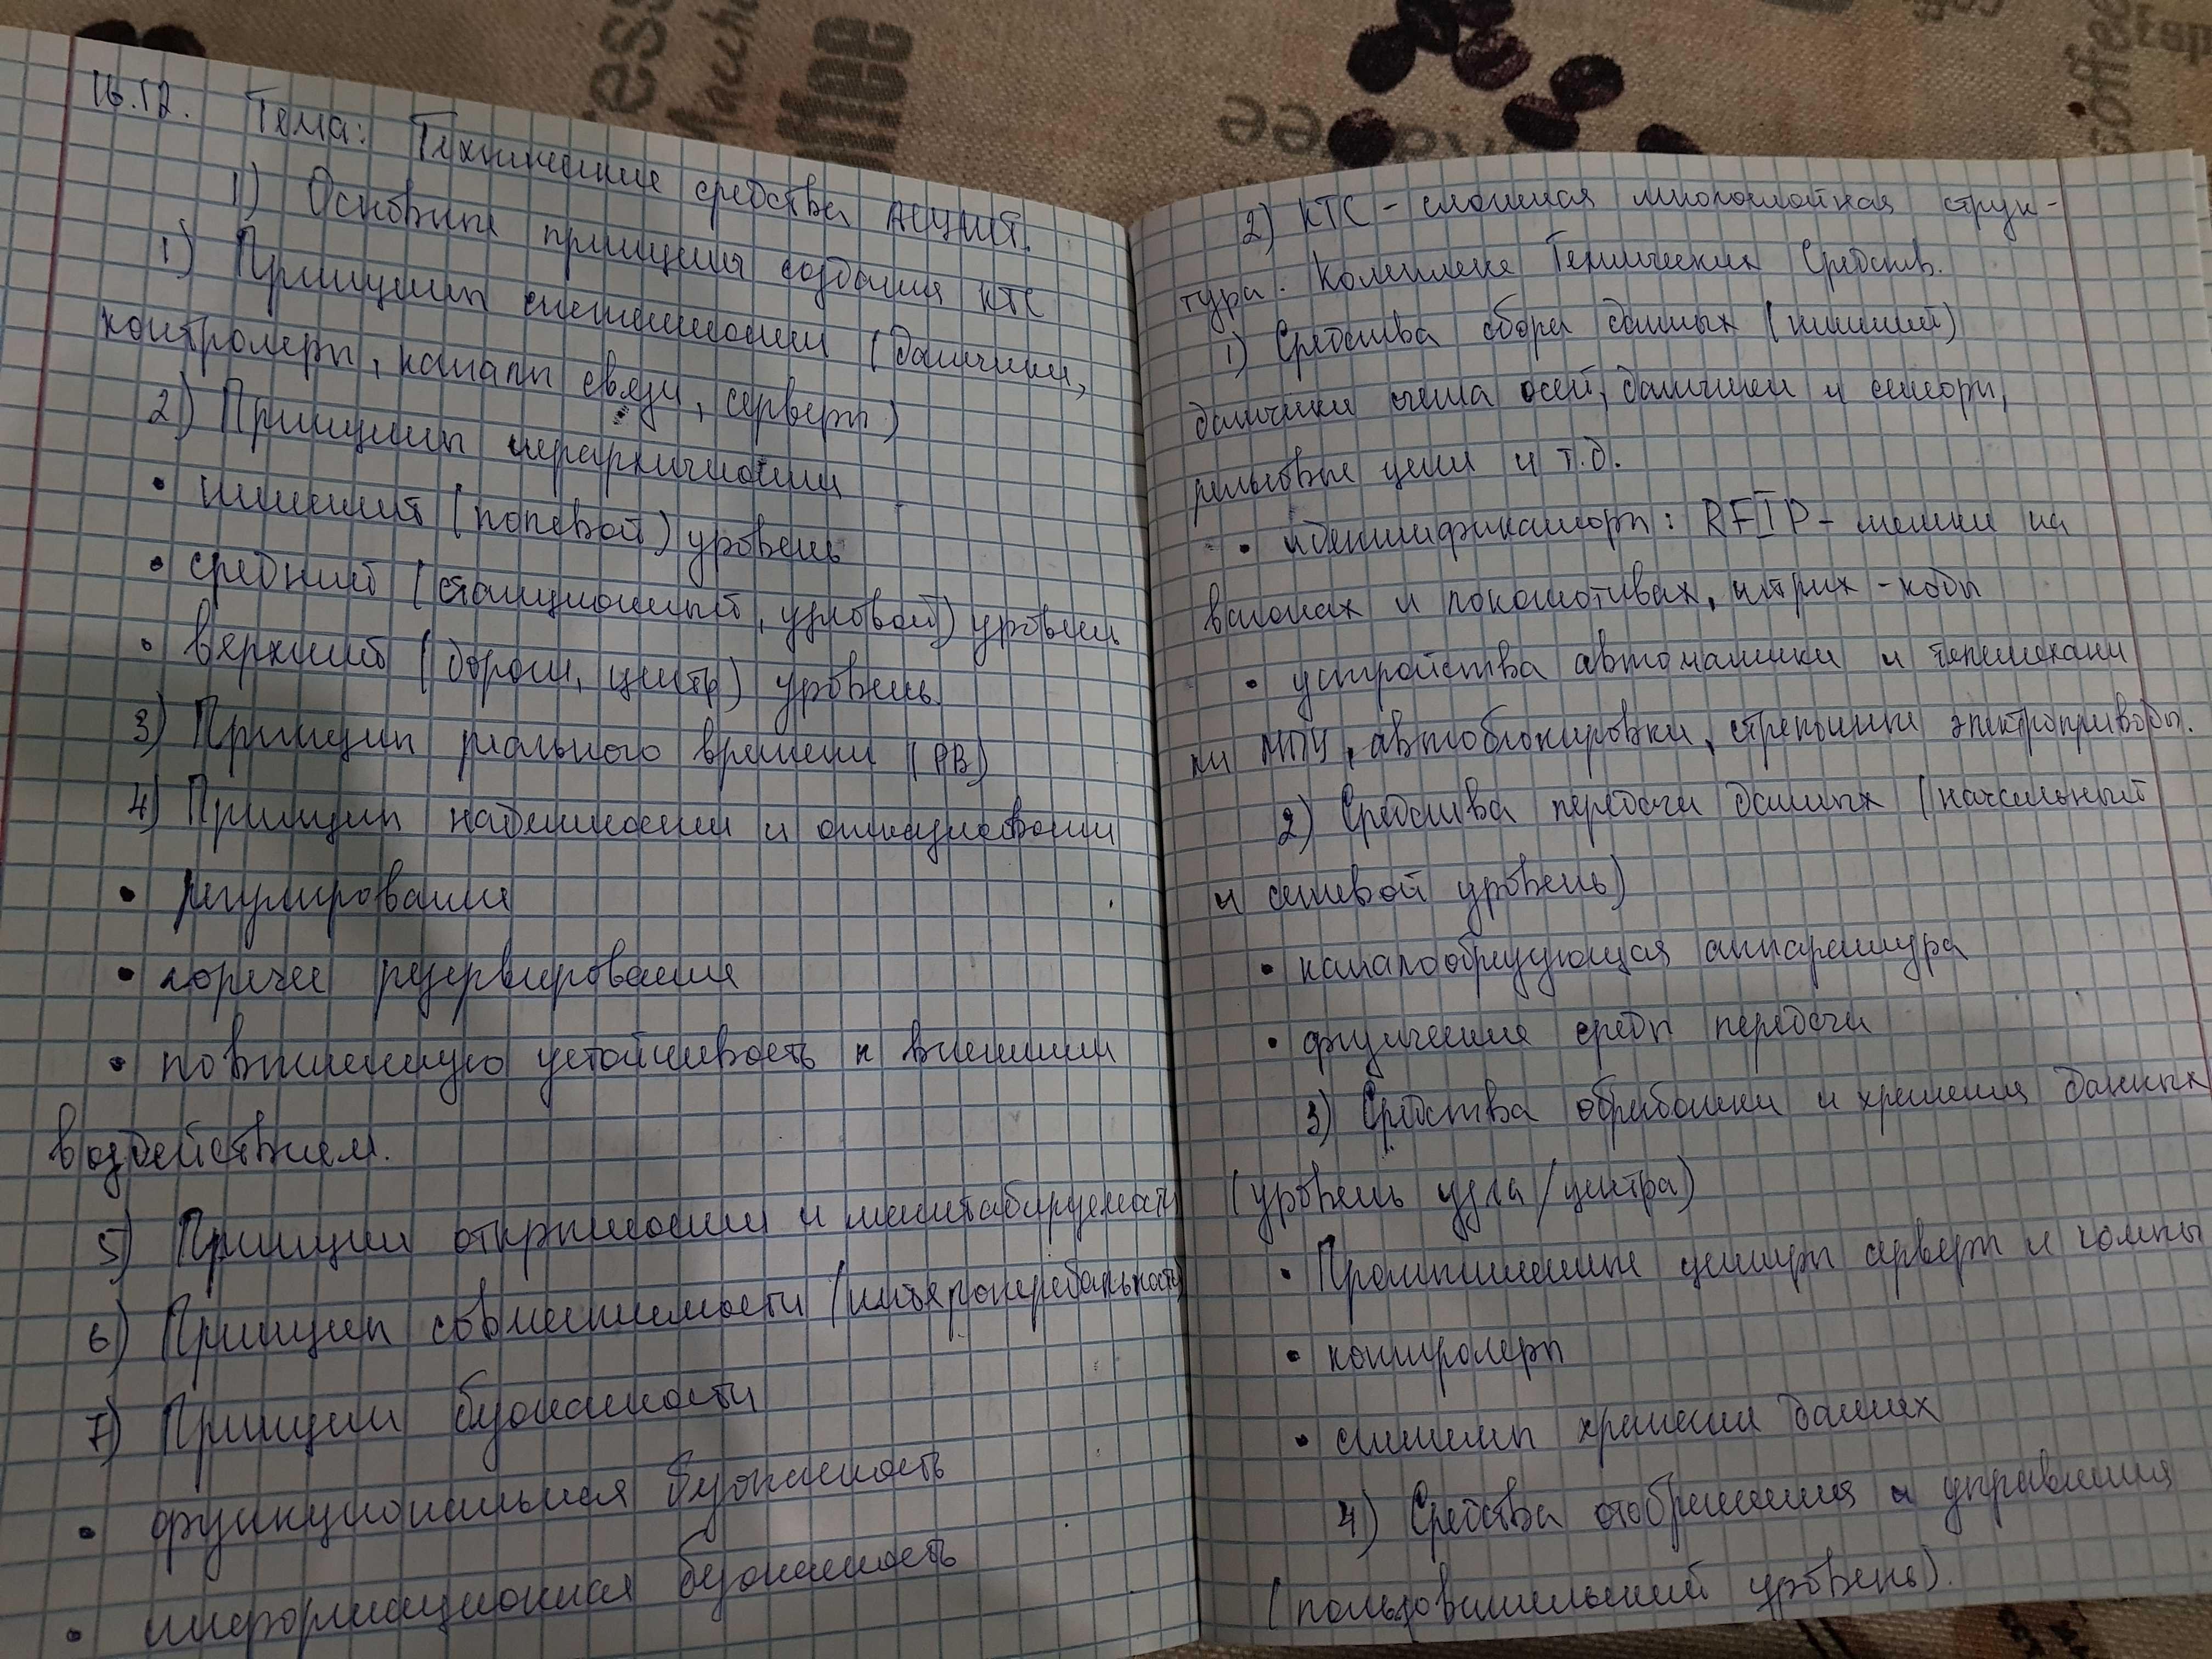 16.12. Тема: Технические средства АСУЖТ.
1) Основные принципы создания КТС
1) Принципы системности (датчики,
контролеры, каналы связи, серверы)
2) Принципы иерархичности
• нижний (полевой) уровень
• средний (станционный, узловой) уровень
• верхний (дороги, центр) уровень.
3) Принцип реального времени (РВ)
4) Принцип надежности и отказуствоти
• регулирование
• горячее резервирование
• повышенную устойчивость к внешним
воздействиям.
5) Принцип открытости и масштабируемости
6) Принцип совместимости (интероперабельность)
7) Принцип безопасности
• функциональная безопасность
• информационная безопасность
2) КТС - сложная многослойная струк-
тура. Комплекс Технических Средств.
1) Средства сбора данных (нижний)
датчики счета осей, датчики и сенсоры,
рельсовые цепи и т.д.
• идентификаторы: RFIP - метки на
вагонах и локомотивах, штрих-коды
• устройства автоматики и телемехани
ки МПЦ, автоблокировки, стрелочные электроприводы.
2) Средства передачи данных (начальный
и сетевой уровень)
• каналообразующая аппаратура
• физические среды передачи
3) Средства обработки и хранения данных
(уровень узла/центра)
• Промышленные центры серверы и компы
• контролеры
• системы хранения данных
4) Средства отображения и управления
(пользовательский уровень).
essee
Macchi
ffee
coffee